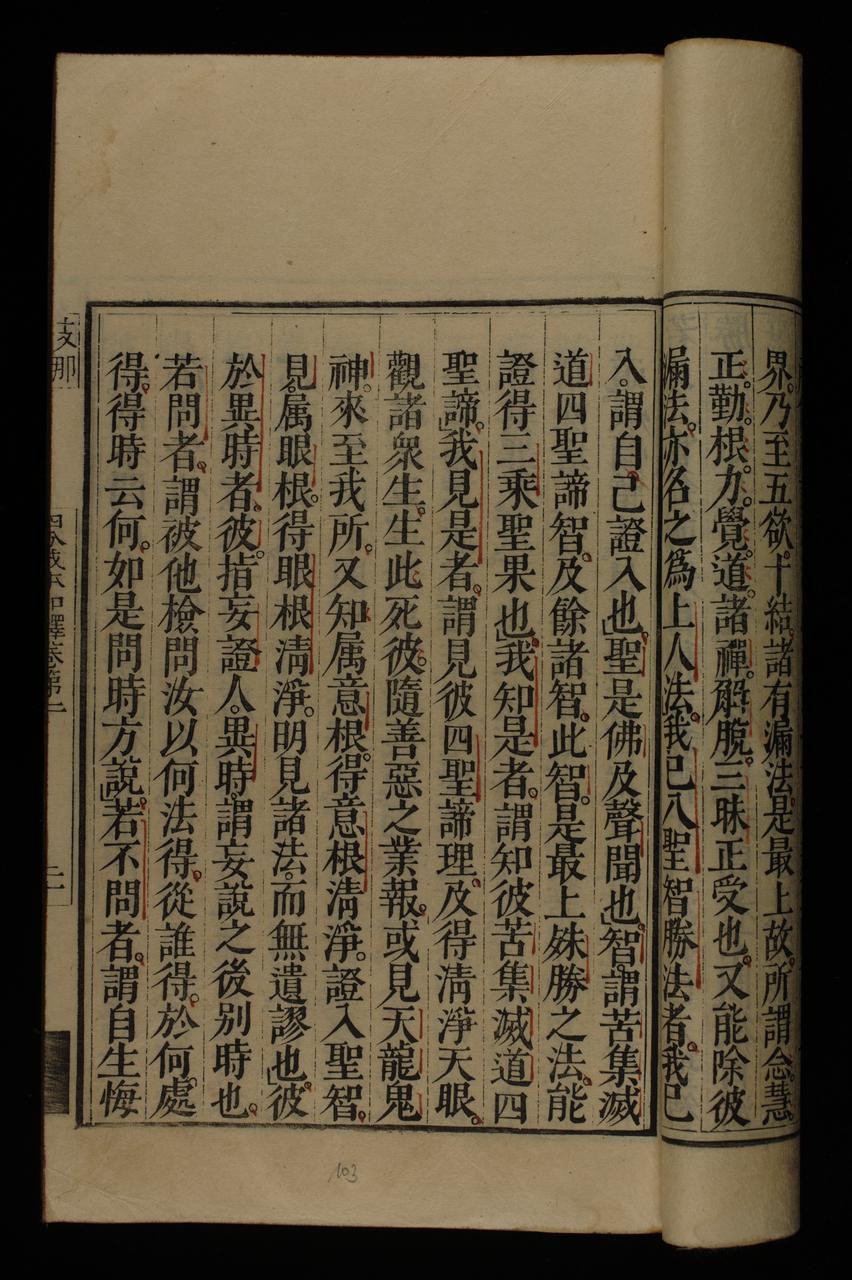 界。乃至五欲。十結。諸有漏法。是最上故。所謂念。慧。
正。勤。根。力。覺。道。諸禪。解脫。三昧正受也。又能除彼
漏法。亦名之爲上人法。我已入聖智勝法者。我已
入。謂自己證入也。聖是佛及聲聞也。智。謂苦集滅
道四聖諦智。及餘諸智。此智。是最上殊勝之法。能
證得三乘聖果也。我知是者。謂知彼苦集滅道四
聖諦。我見是者。謂見彼四聖諦理。及得清淨天眼。
觀諸衆生。生此死彼。隨善惡之業報。或見天龍鬼
神。來至我所。又知属意根。得意根清淨。證入聖智。
見。属眼根。得眼根清淨。明見諸法。而無遺謬也。彼
於異時者。彼。指妄證人。異時。謂妄說之後别時也。
若問者。謂彼他檢問汝以何法得。從誰得。於何處
得。得時云何。如是問時方說。若不問者。謂自生悔
支那
四分戒本如釋卷第一
二
103